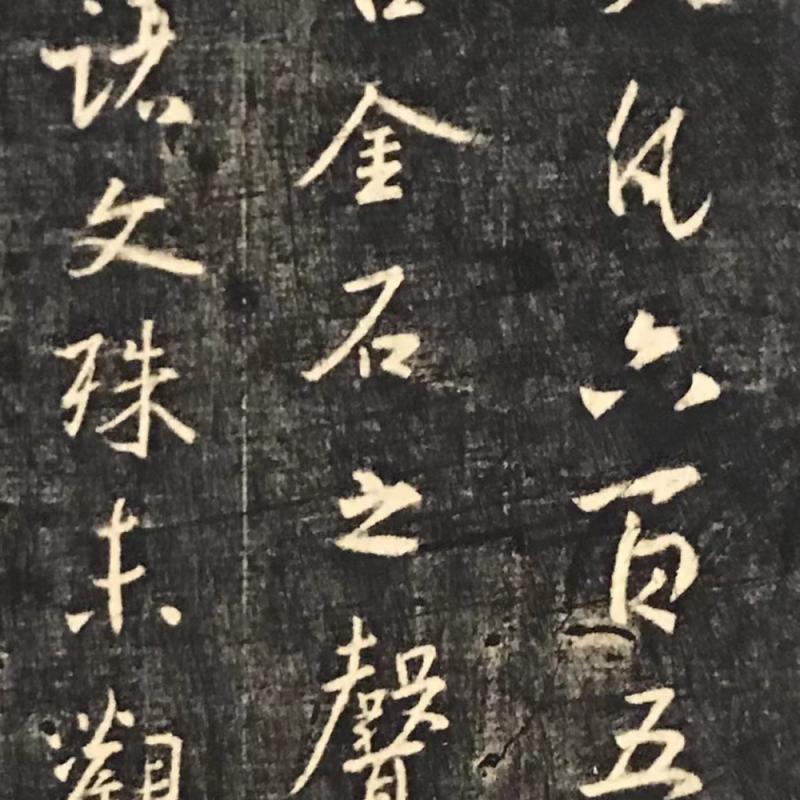 凡六百五
金石之聲
諸文殊未觀